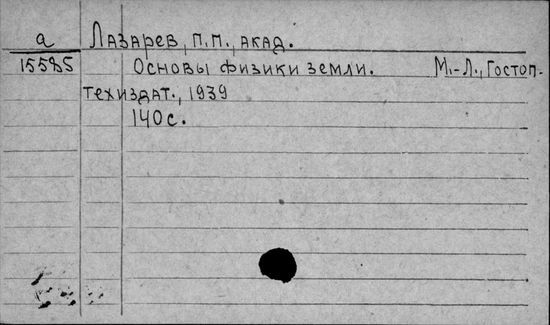 а Лазарев, П.П., акад.
15585 Основы физики земли. М.-Л., Гостоп-
техиздат., 1939
140 с.